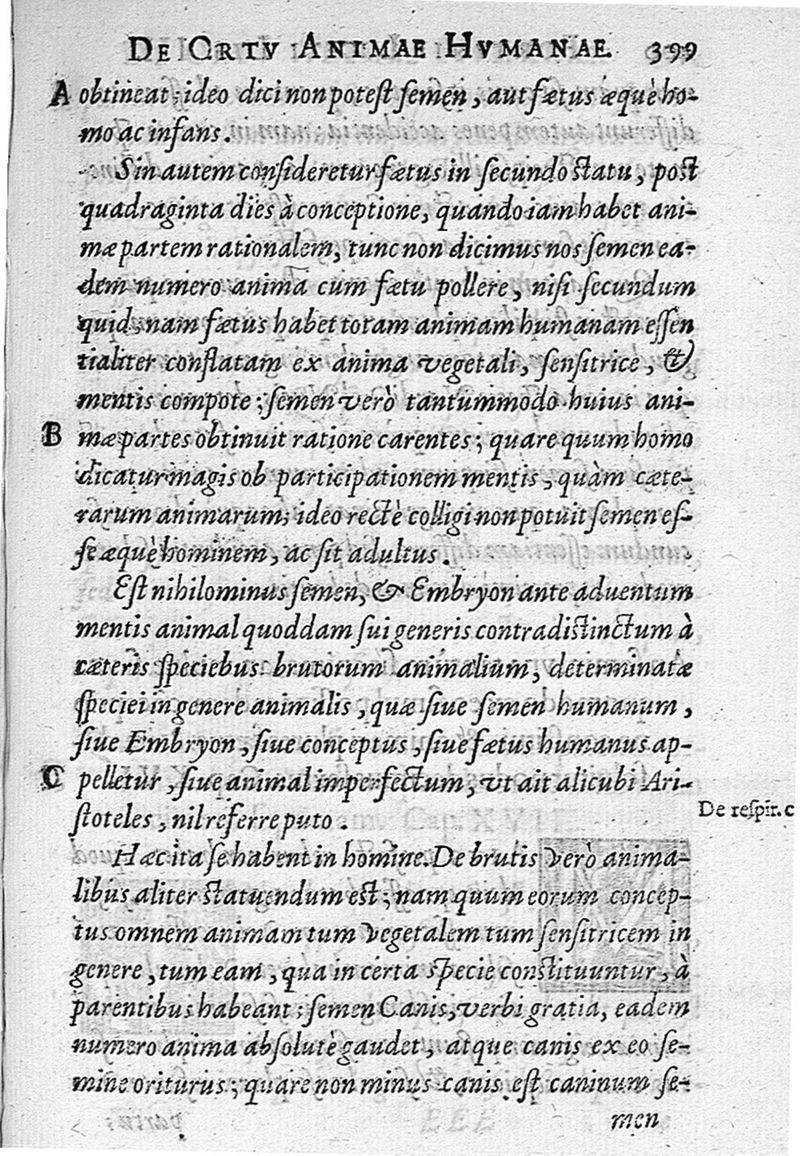 DE ORTV ANIMAE HVMANAE. 399
A obtineat; ideo dici non potest semen, aut fætus æquè ho-
mo ac infans.
Sin autem consideretur fætus in secundo statu, post
quadraginta dies à conceptione, quando iam habet ani-
mæ partem rationalem, tunc non dicimus nos semen ea-
dem numero anima cum fætu pollere, nisi secundum
quid; nam fætus habet totam animam humanam essen
tialiter conflatam ex anima vegetali, sensitrice, &
mentis compote; semen verò tantummodo huius ani-
B mæ partes obtinuit ratione carentes; quare quum homo
dicatur magis ob participationem mentis, quàm cæte-
rarum animarum; ideo rectè colligi non potuit semen es-
se æquè hominem, ac sit adultus.
Est nihilominus semen, & Embryon ante aduentum
mentis animal quoddam sui generis contradistinctum à
cæteris speciebus brutorum animalium, determinatæ
speciei in genere animalis, quæ siue semen humanum,
siue Embryon, siue conceptus, siue fætus humanus ap-
C pelletur, siue animal imperfectum, vt ait alicubi Ari-
stoteles, nil referre puto.
De respir. c
Hæc ita se habent in homine. De brutis verò anima-
libus aliter statuendum est; nam quum eorum concep-
tus omnem animam tum vegetalem tum sensitricem in
genere, tum eam, qua in certa specie constituuntur, à
parentibus habeant; semen Canis, verbi gratia, eadem
numero anima absolutè gaudet, atque canis ex eo se-
mine oriturus; quare non minus canis est caninum se-
men